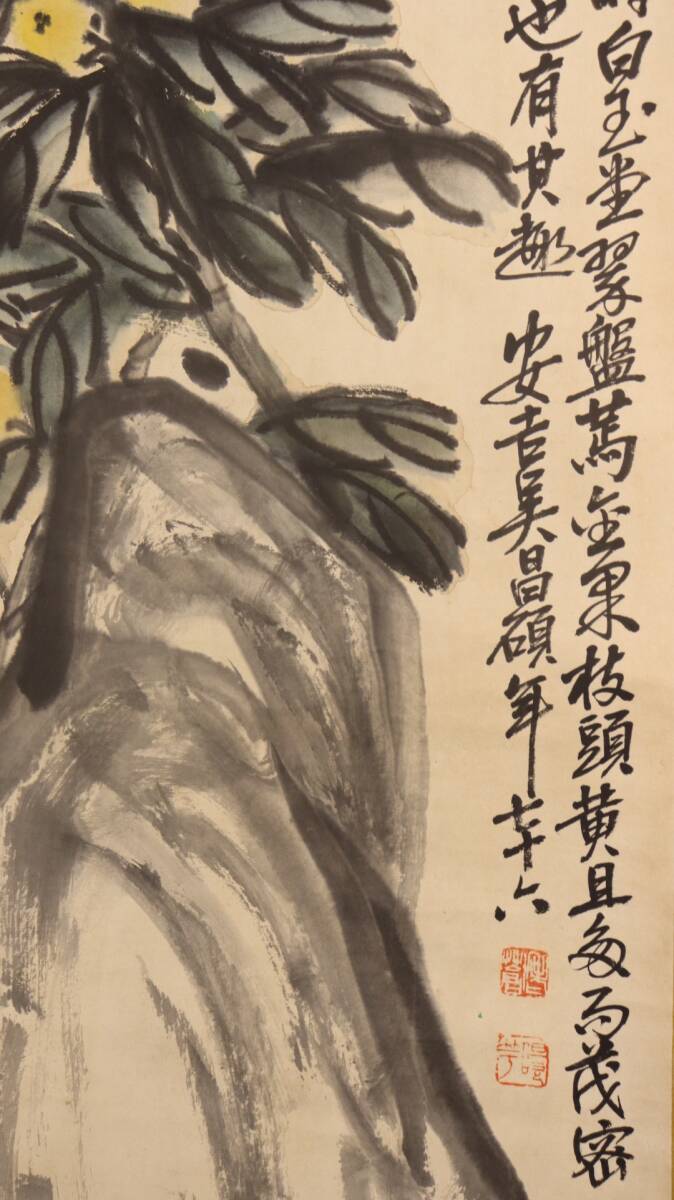 白玉堂翠盤薦金果枝頭黄且多而茂密
也有其趣 安吉吳昌碩年七十六